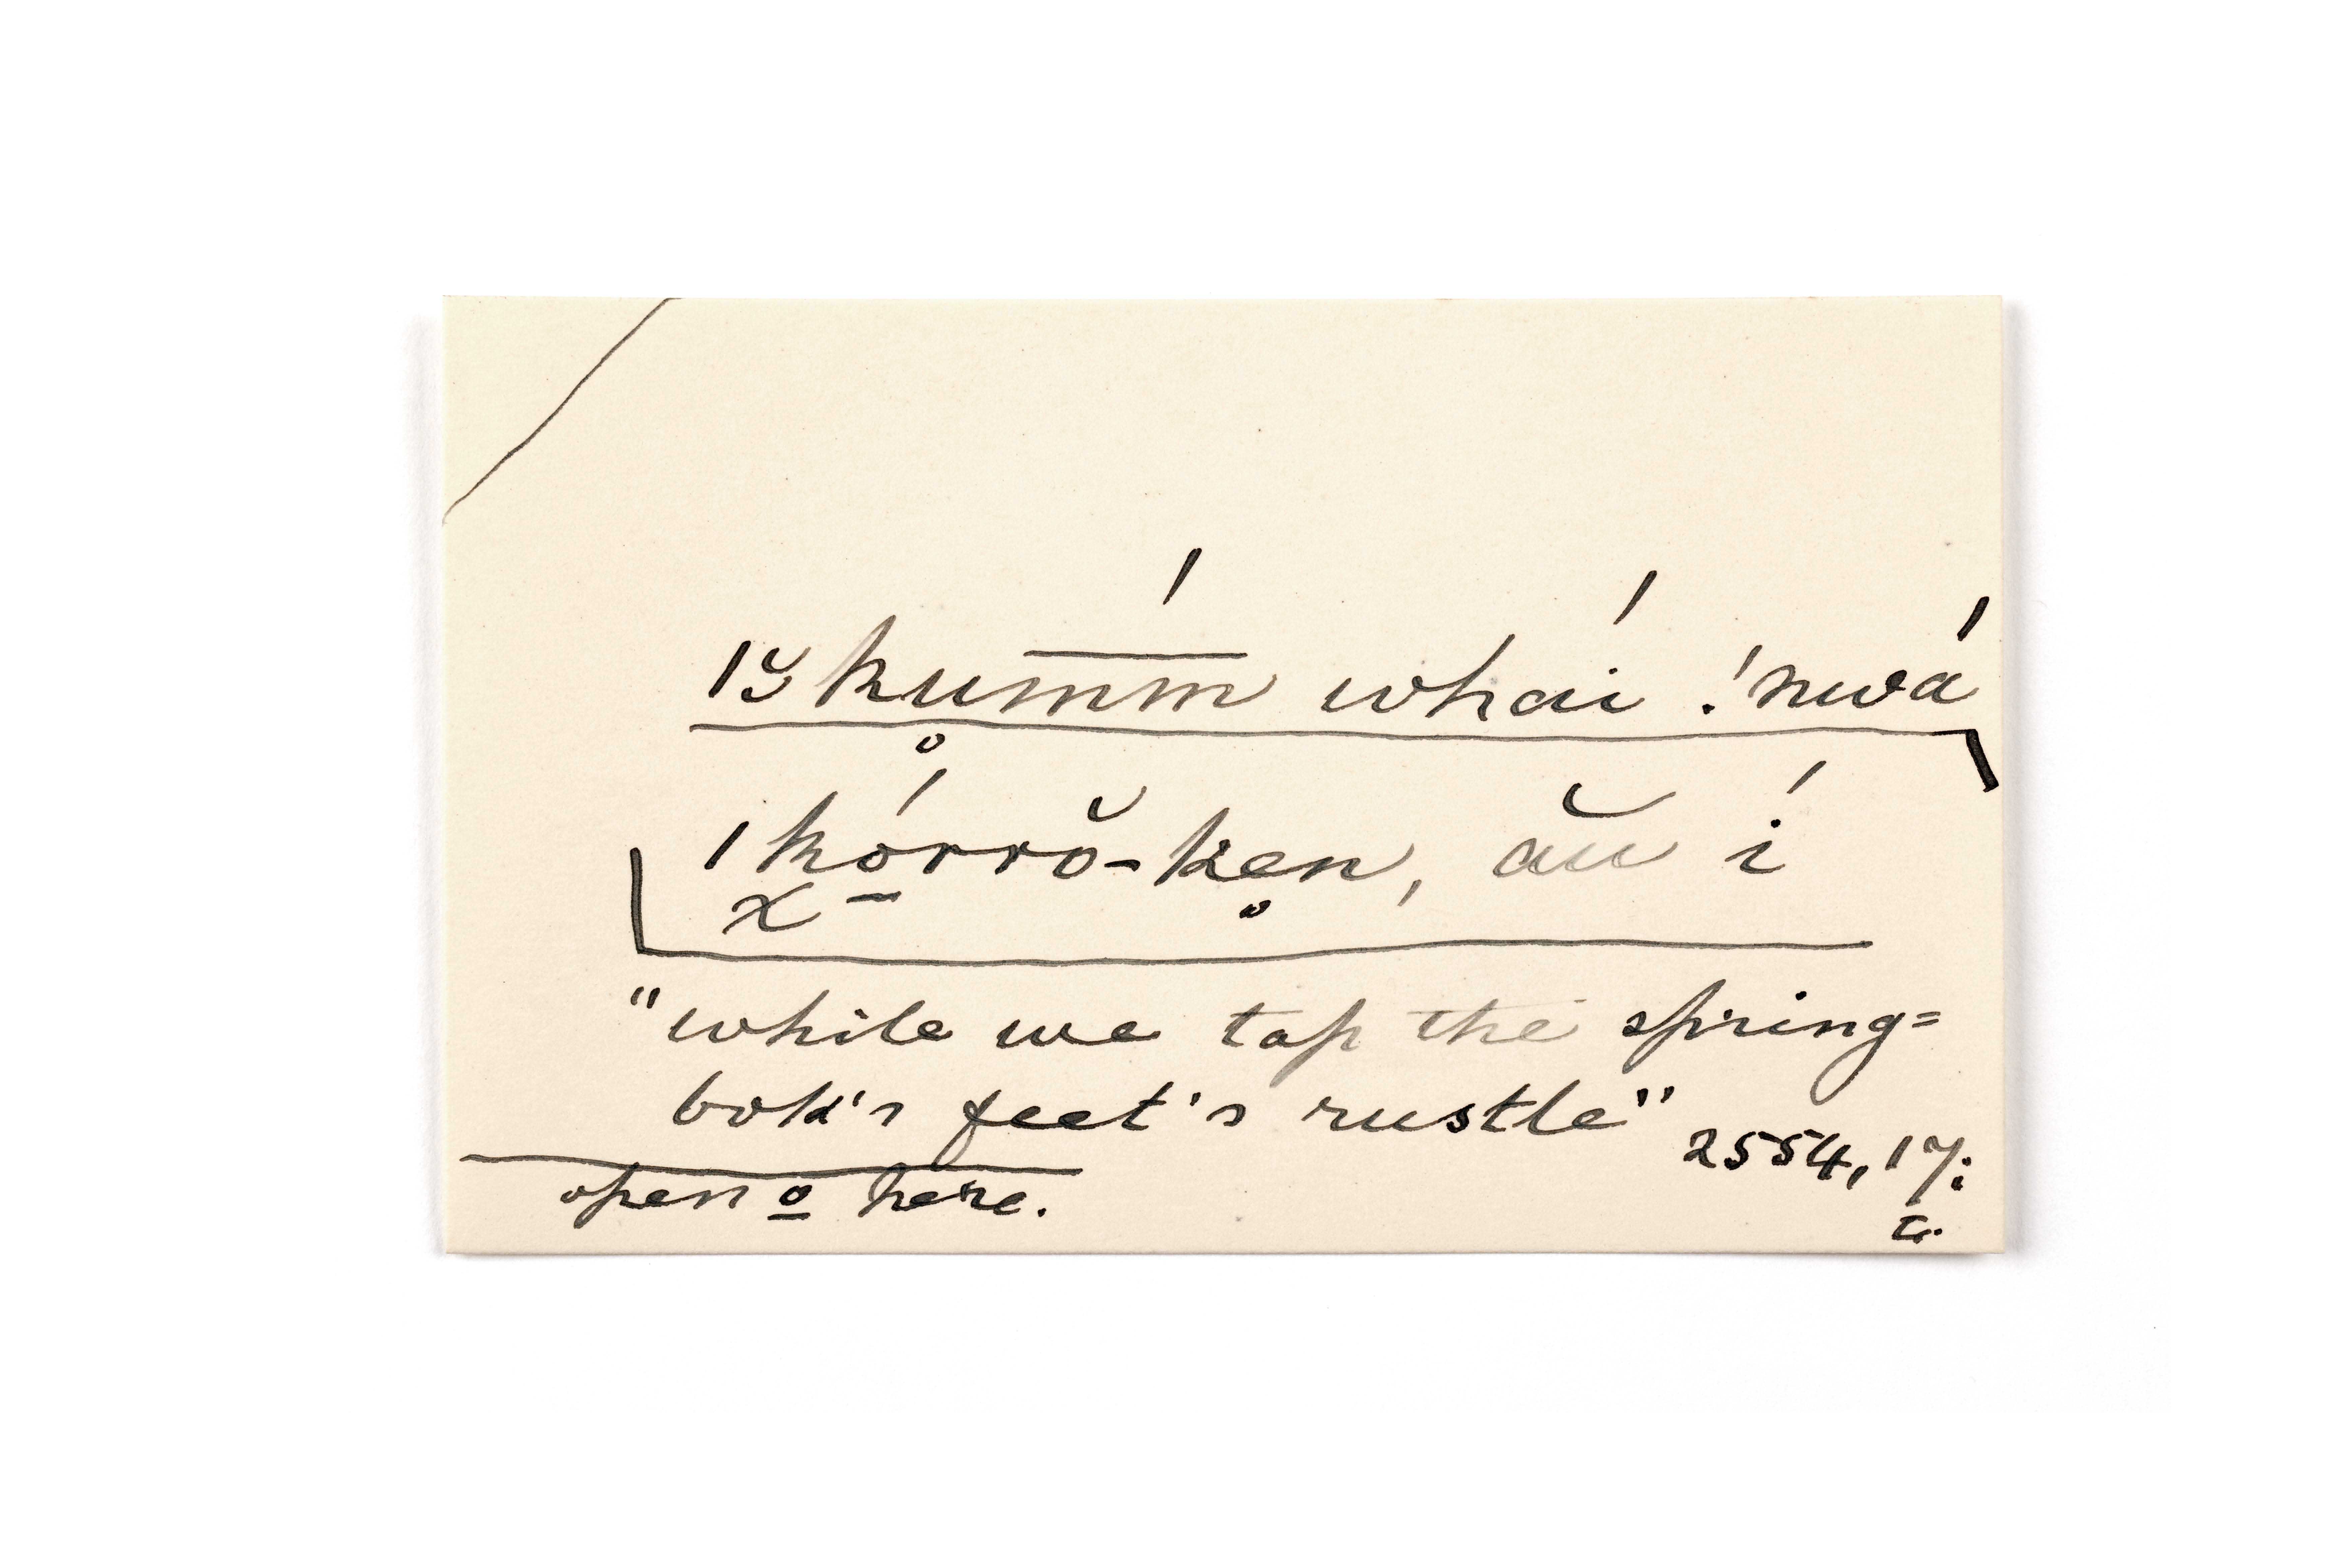 |ɤ̆ku̥m̅́m̅ whái !nwá
|kó̱rrŏ-ke̥n, ău í
"while we tap the spring=
bok's feet's rustle"
2554, 17:
open o̲ here.